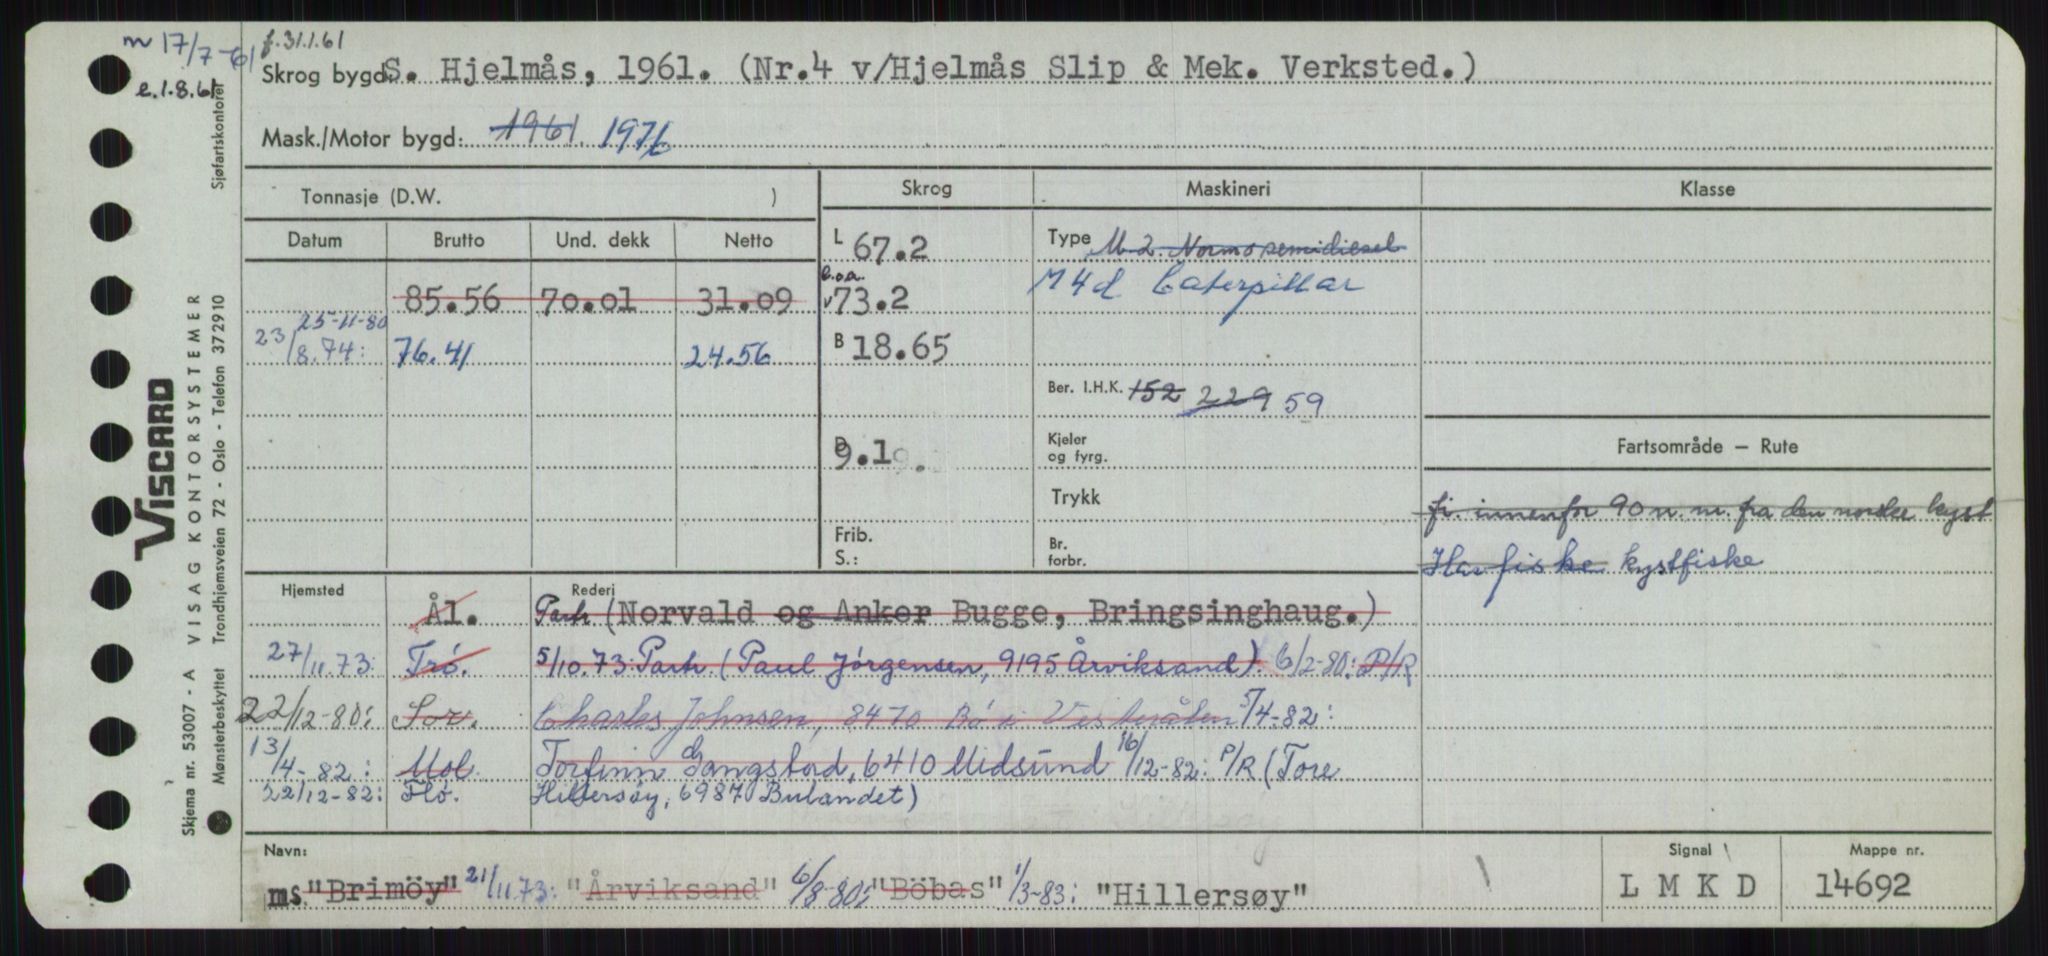 m 17/7-61
f. 31.1.61
e.1.8.61
Skrog bygd: S. Hjelmås, 1961. (Nr.4 v/Hjelmås Slip & Mek. Verksted.)
Mask./Motor bygd: 1961. 1976
Tonnasje (D.W. )
Skrog
Maskineri
Klasse
Datum Brutto Und. dekk Netto
L 67.2
Type M 2. Normo semidiesel
85.56 70.01 31.09
l.o.a. 73.2
M4d Caterpillar
25-11-80
23/8.74: 76.41 24.56
B 18.65
Ber. I.H.K. 152 229 59
D 9.1
Kjeler og fyrg.
Fartsområde – Rute
Trykk
fi. innenfor 90 n. m. fra den norske kyst
Frib. S.:
Br. forbr.
Havfiske kystfiske
Hjemsted Rederi
Ål. Partr. (Norvald og Anker Bugge, Bringsinghaug.)
27/11.73: Trö. 5/10.73: Partr. (Paul Jörgensen, 9195 Årviksand). 6/2-80: P/R
22/12-80: Sor. Charles Johnsen, 8470 Bö i Vesterålen 5/4-82:
13/4-82: Mol. Torfinn Gangstad, 6410 Midsund 16/12-82: P/R (Tore
22/12-82: Flö. Hillersøy, 6987 Bulandet)
Navn:
ms. "Brimöy" 21/11.73: "Årviksand" 6/8-80: "Böbas" 1/3-83: "Hillersøy"
Signal
L M K D
Mappe nr.
14692
Skjema nr. 53007 - A VISAG KONTORSYSTEMER
VISCARD
Mønsterbeskyttet Trondhjemsveien 72 - Oslo - Telefon 372910 Sjøfartskontoret